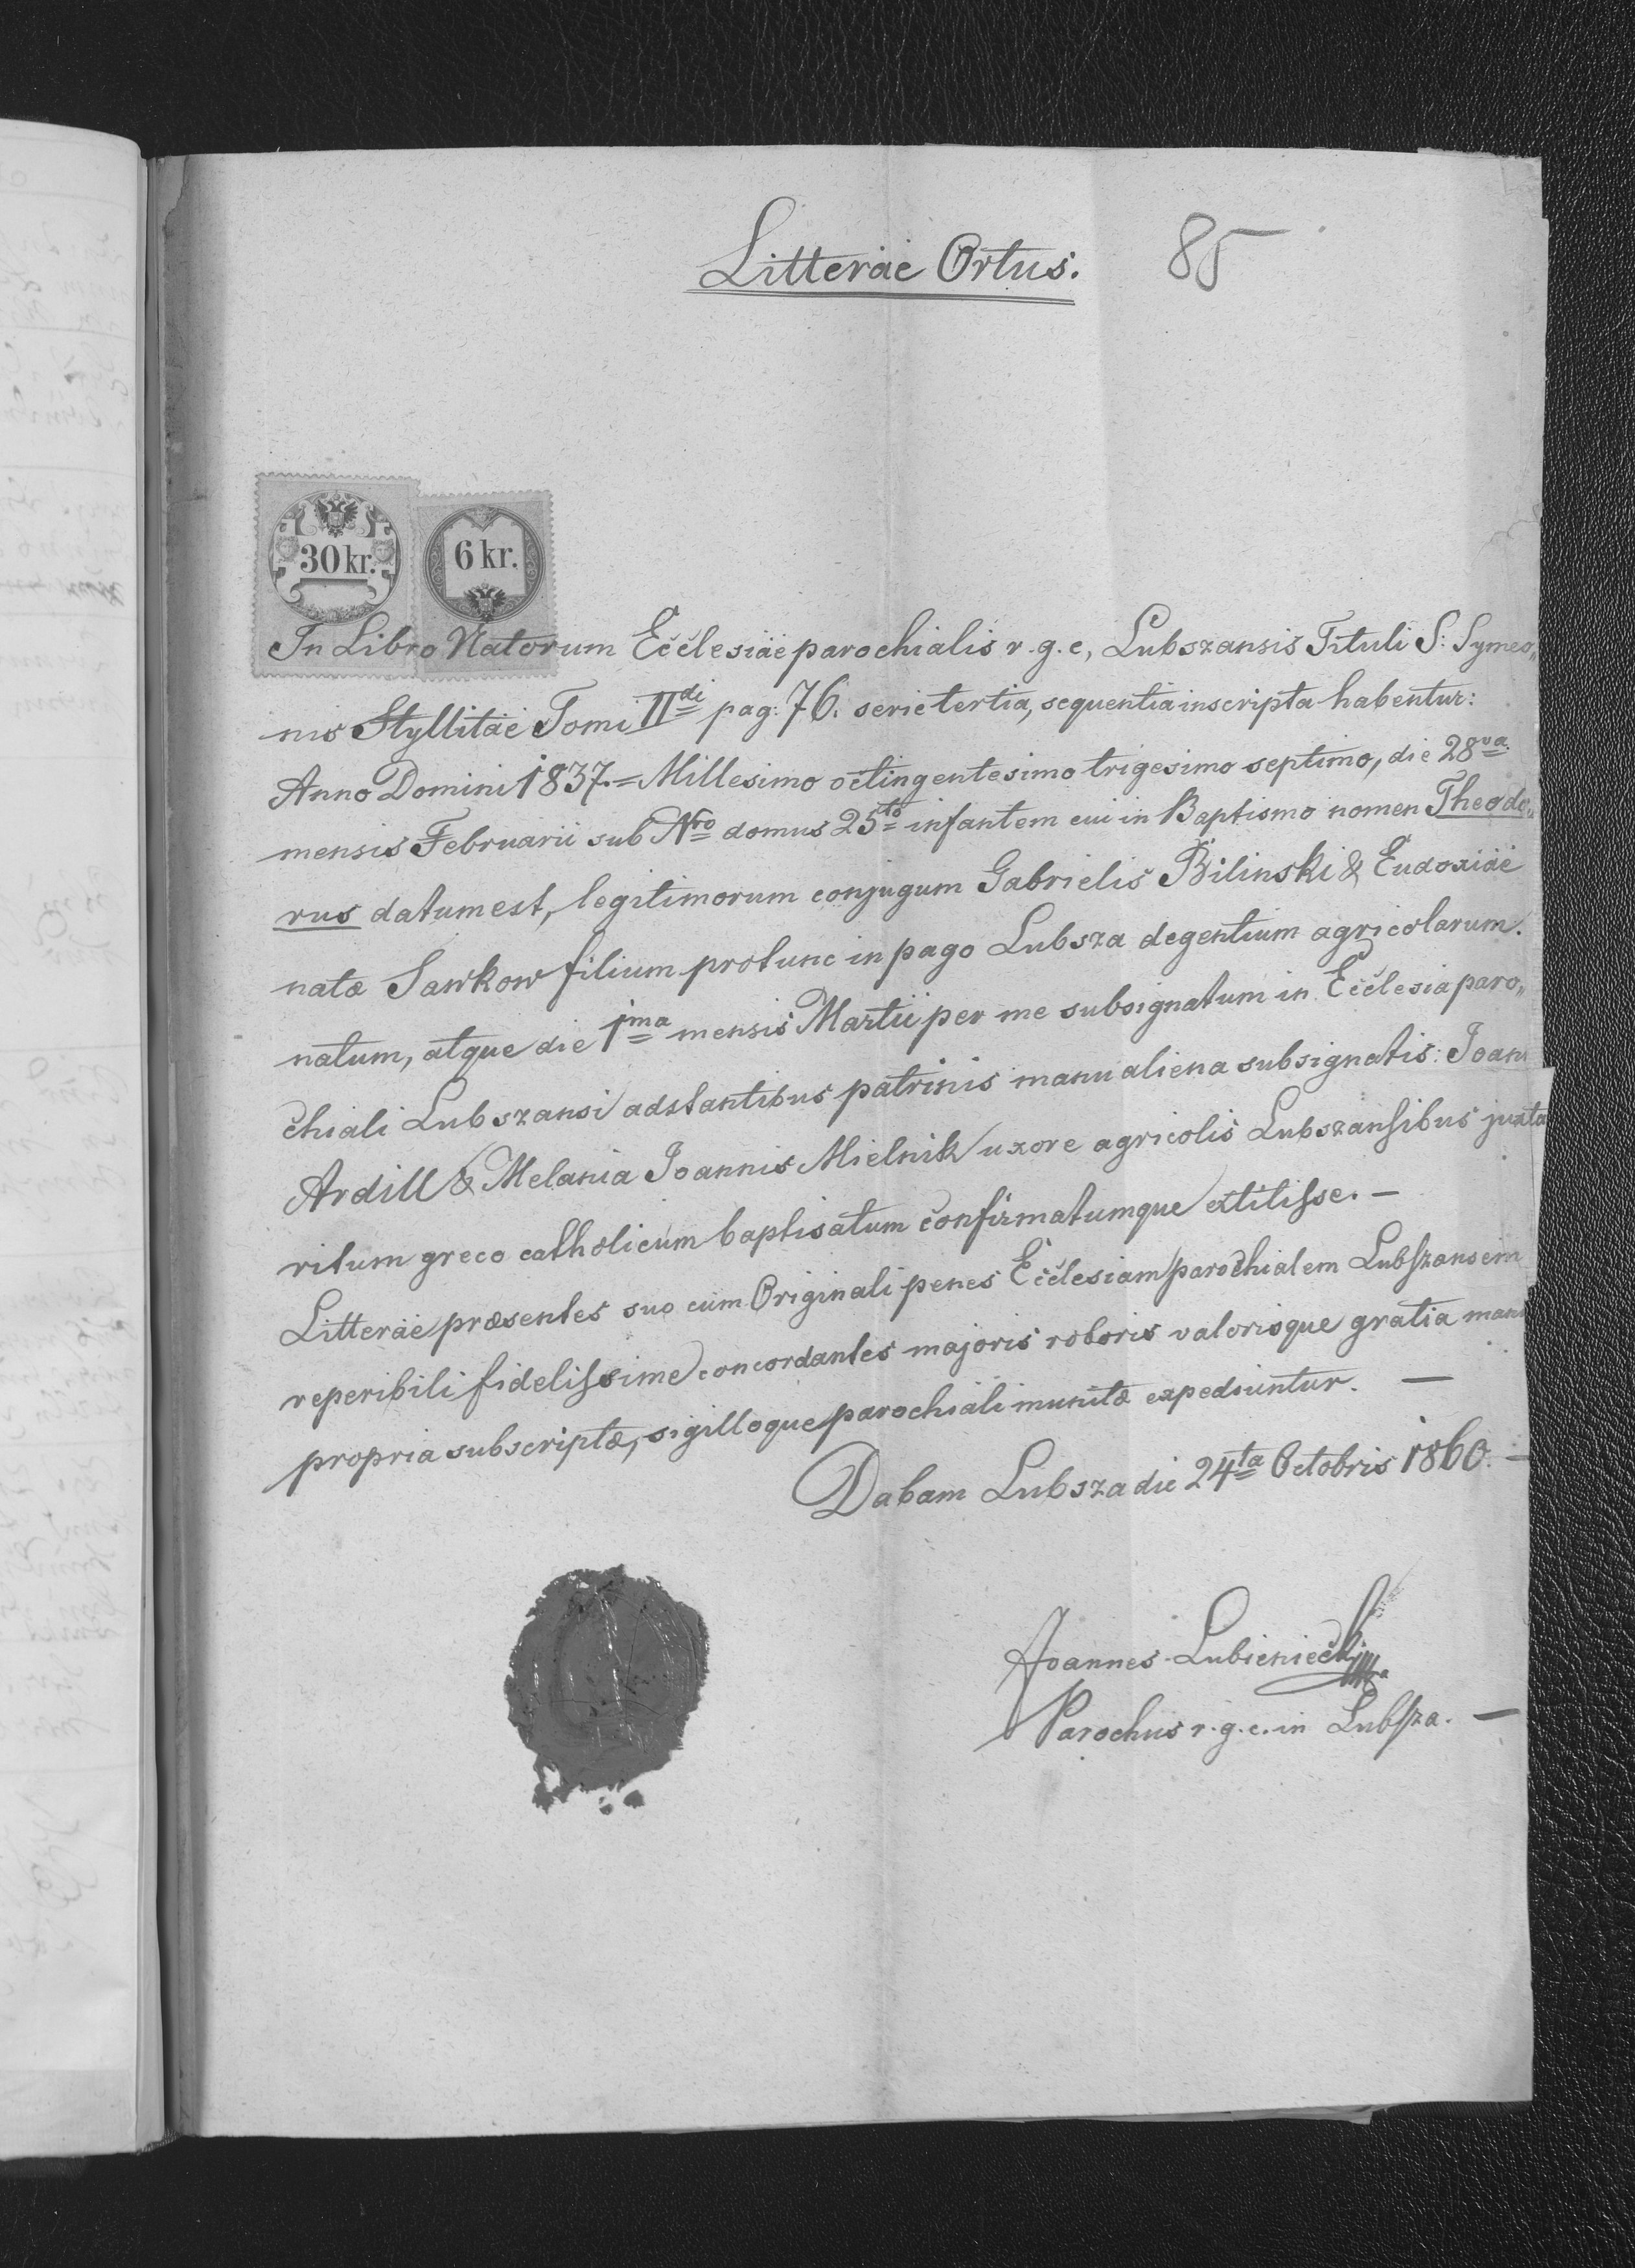 Litterae Ortus.
85
30 kr.
6 kr.
In Libro Natorum Ecclesiae parochialis r. g. c, Lubszansis Tituli S: Symeo„
nis Styllitae Tomi IIdi pag: 76. serie tertia, sequentia inscripta habentur:
Anno Domini 1837.= Millesimo octingentesimo trigesimo septimo, die 28va
mensis Februarii sub Nro domus 25to infantem cui in Baptismo nomen Theodo„
rus datum est, legitimorum conjugum Gabrielis Bilinski & Eudoxiae
natæ Sawkow filium protunc in pago Lubsza degentium agricolarum.
natum, atque die 1ma mensis Martii per me subsignatum in Ecclesia paro„
chiali Lubszansi adstantibus patrinis manu aliena subsignatis: Joan
Ardill & Melania Joannis Mielnik uxore agricolis Lubszansibus juxta
ritum greco catholicum baptisatum confirmatumque extitisse. —
Litterae præsentes suo cum Originali penes Ecclesiam parochialem Lubszansem
reperibili fidelissime concordantes majoris roboris valorisque gratia manu
propria subscriptæ, sigilloque parochiali munitæ expediuntur. —
Dabam Lubsza die 24ta Octobris 1860. —
Joannes Lubieniecki
Parochus r. g. c. in Lubsza. —